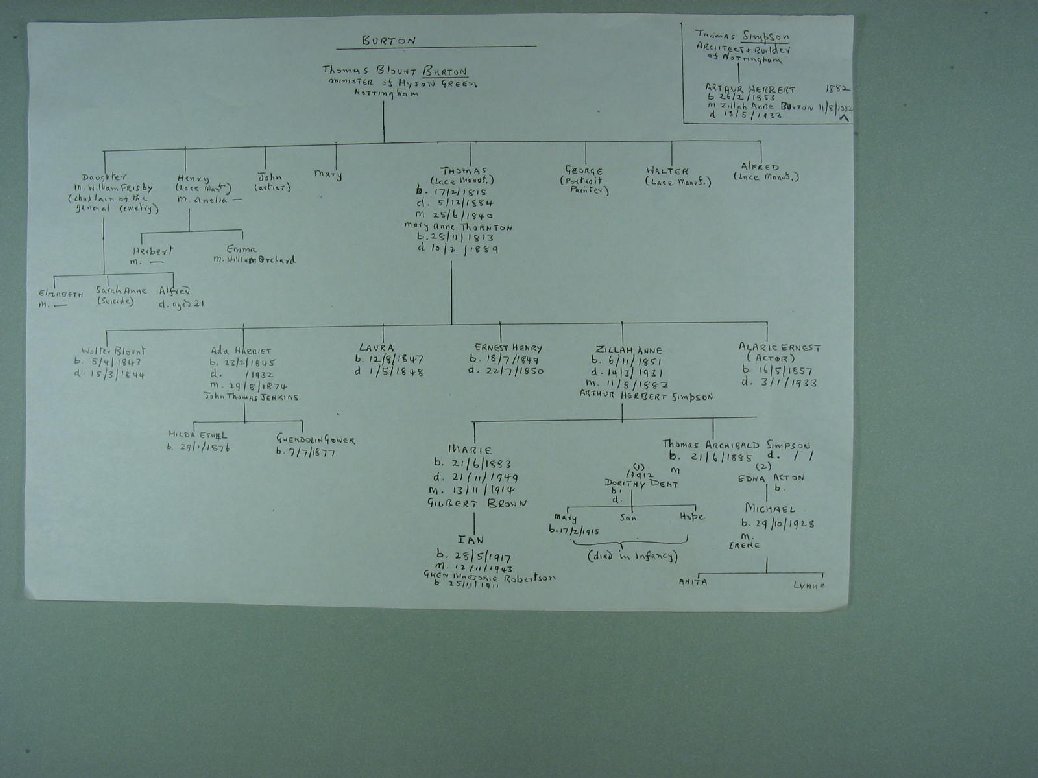 BURTON
Thomas Blount BURTON
minister of HYSON GREEN
Nottingham
Thomas Simpson
ARCHITECT & Builder
of NOTTINGHAM
ARTHUR HERBERT 1882
b 26/2/1853
m Zillah Anne BURTON 11/8/1882
d 13/5/1932
Daughter
M. William FRISBY
(chaplain of the
general Cemetry)
Henry
(Lace Manft)
m. Amelia —
John
(artist)
Mary
THOMAS
(Lace Manft.)
b. 17/2/1815
d. 5/12/1884
m 25/6/1840
Mary Anne THORNTON
b. 28/11/1813
d 10/2/1889
GEORGE
(Portrait
Painter)
WALTER
(Lace Manft.)
ALFRED
(Lace Manft.)
Herbert
m. —
Emma
m. William Orchard
ELIZABETH
m. —
Sarah Anne
(Suicide)
Alfred
d. aged 21
Walter Blount
b. 5/4/1842
d. 15/3/1844
Ada HARRIET
b. 23/2/1845
d. /1932
m. 29/8/1874
John Thomas JENKINS
LAURA
b. 12/8/1847
d 1/5/1848
ERNEST HENRY
b. 18/7/1849
d. 22/7/1850
ZILLAH ANNE
b. 6/11/1851
d. 10/3/1931
m. 11/8/1882
ARTHUR HERBERT SIMPSON
ALARIC ERNEST
(ACTOR)
b. 16/5/1857
d. 3/1/1933
HILDA ETHEL
b. 29/1/1876
GWENDOLIN GOWER
b. 7/7/1877
MARIE
b. 21/6/1883
d. 21/11/1949
m. 13/11/1914
GILBERT BROWN
Thomas ARCHIBALD SIMPSON
b. 21/6/1885 d. / /
m
(1)
/1912
DOROTHY DENT
b.
d.
(2)
EDNA ACTON
b.
Mary
b. 17/2/1915
Son
Hope
(died in infancy)
MICHAEL
b. 29/10/1928
m.
IRENE
IAN
b. 28/5/1917
m. 12/11/1943
GWEN Marjorie Robertson
b 25/11/1911
ANITA